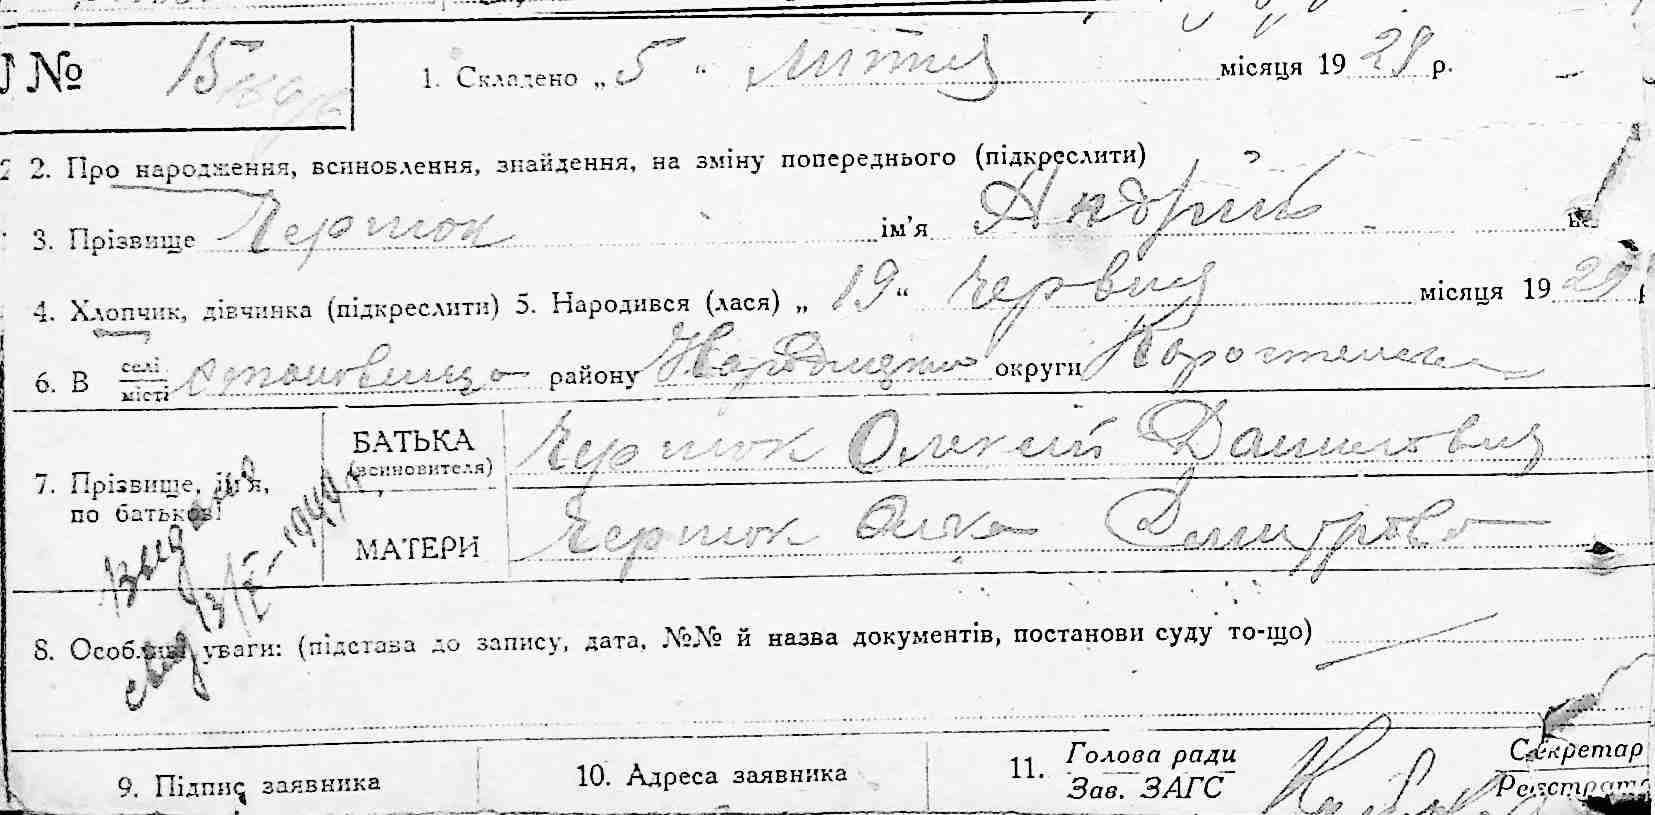 № 15
1. Складено „ 5 “ липня місяця 1929 р.
2. Про народження, всиновлення, знайдення, на зміну попереднього (підкреслити)
3. Прізвище Чертюк ім’я Андрій
4. Хлопчик, дівчинка (підкреслити) 5. Народився (лася) „ 19 “ червня місяця 1929
6. В селі місті район у Народицько округи Коростенськ
7. Прізвище, ім’я, по батькові
БАТЬКА (всиновителя) Чертюк Олексій Данилович
МАТЕРИ Чертюк Дмитрово
Выдано
8. Особливі уваги: (підстава до запису, дата, №№ й назва документів, постанови суду то-що)
9. Підпис заявника 10. Адреса заявника 11. Голова ради Зав. ЗАГС Секретар